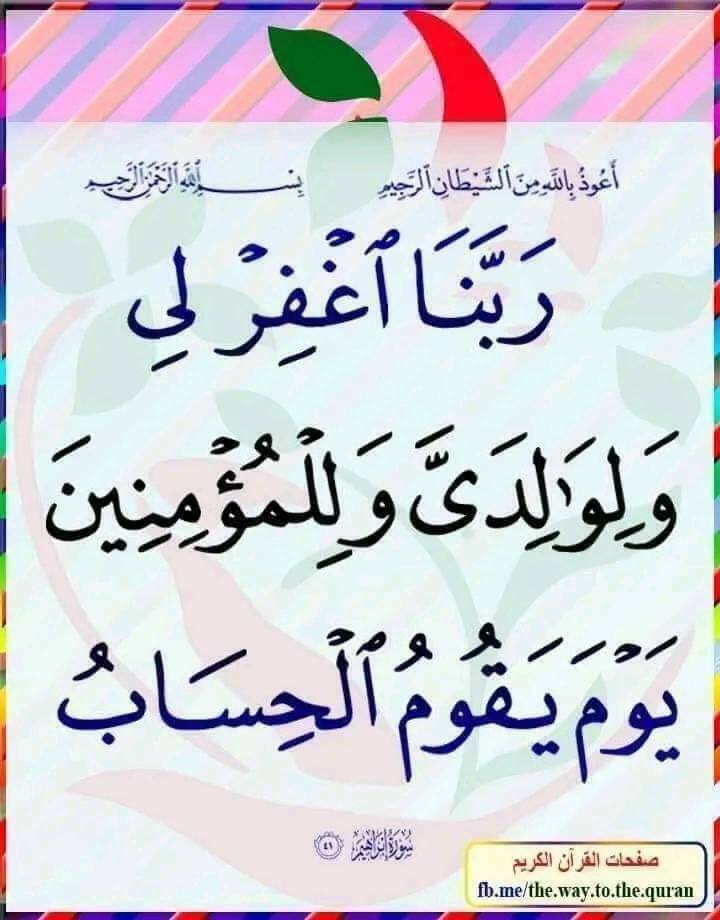 أَعُوذُ بِاللَّهِ مِنَ ٱلشَّيْطَانِ ٱلرَّجِيمِ بِسْمِ ٱللَّهِ ٱلرَّحْمَٰنِ ٱلرَّحِيمِ
رَبَّنَا ٱغْفِرْ لِي
وَلِوَٰلِدَىَّ وَلِلْمُؤْمِنِينَ
يَوْمَ يَقُومُ ٱلْحِسَابُ
سُورَةُ إِبْرَاهِيمَ ٤١
صفحات القرآن الكريم
fb.me/the.way.to.the.quran